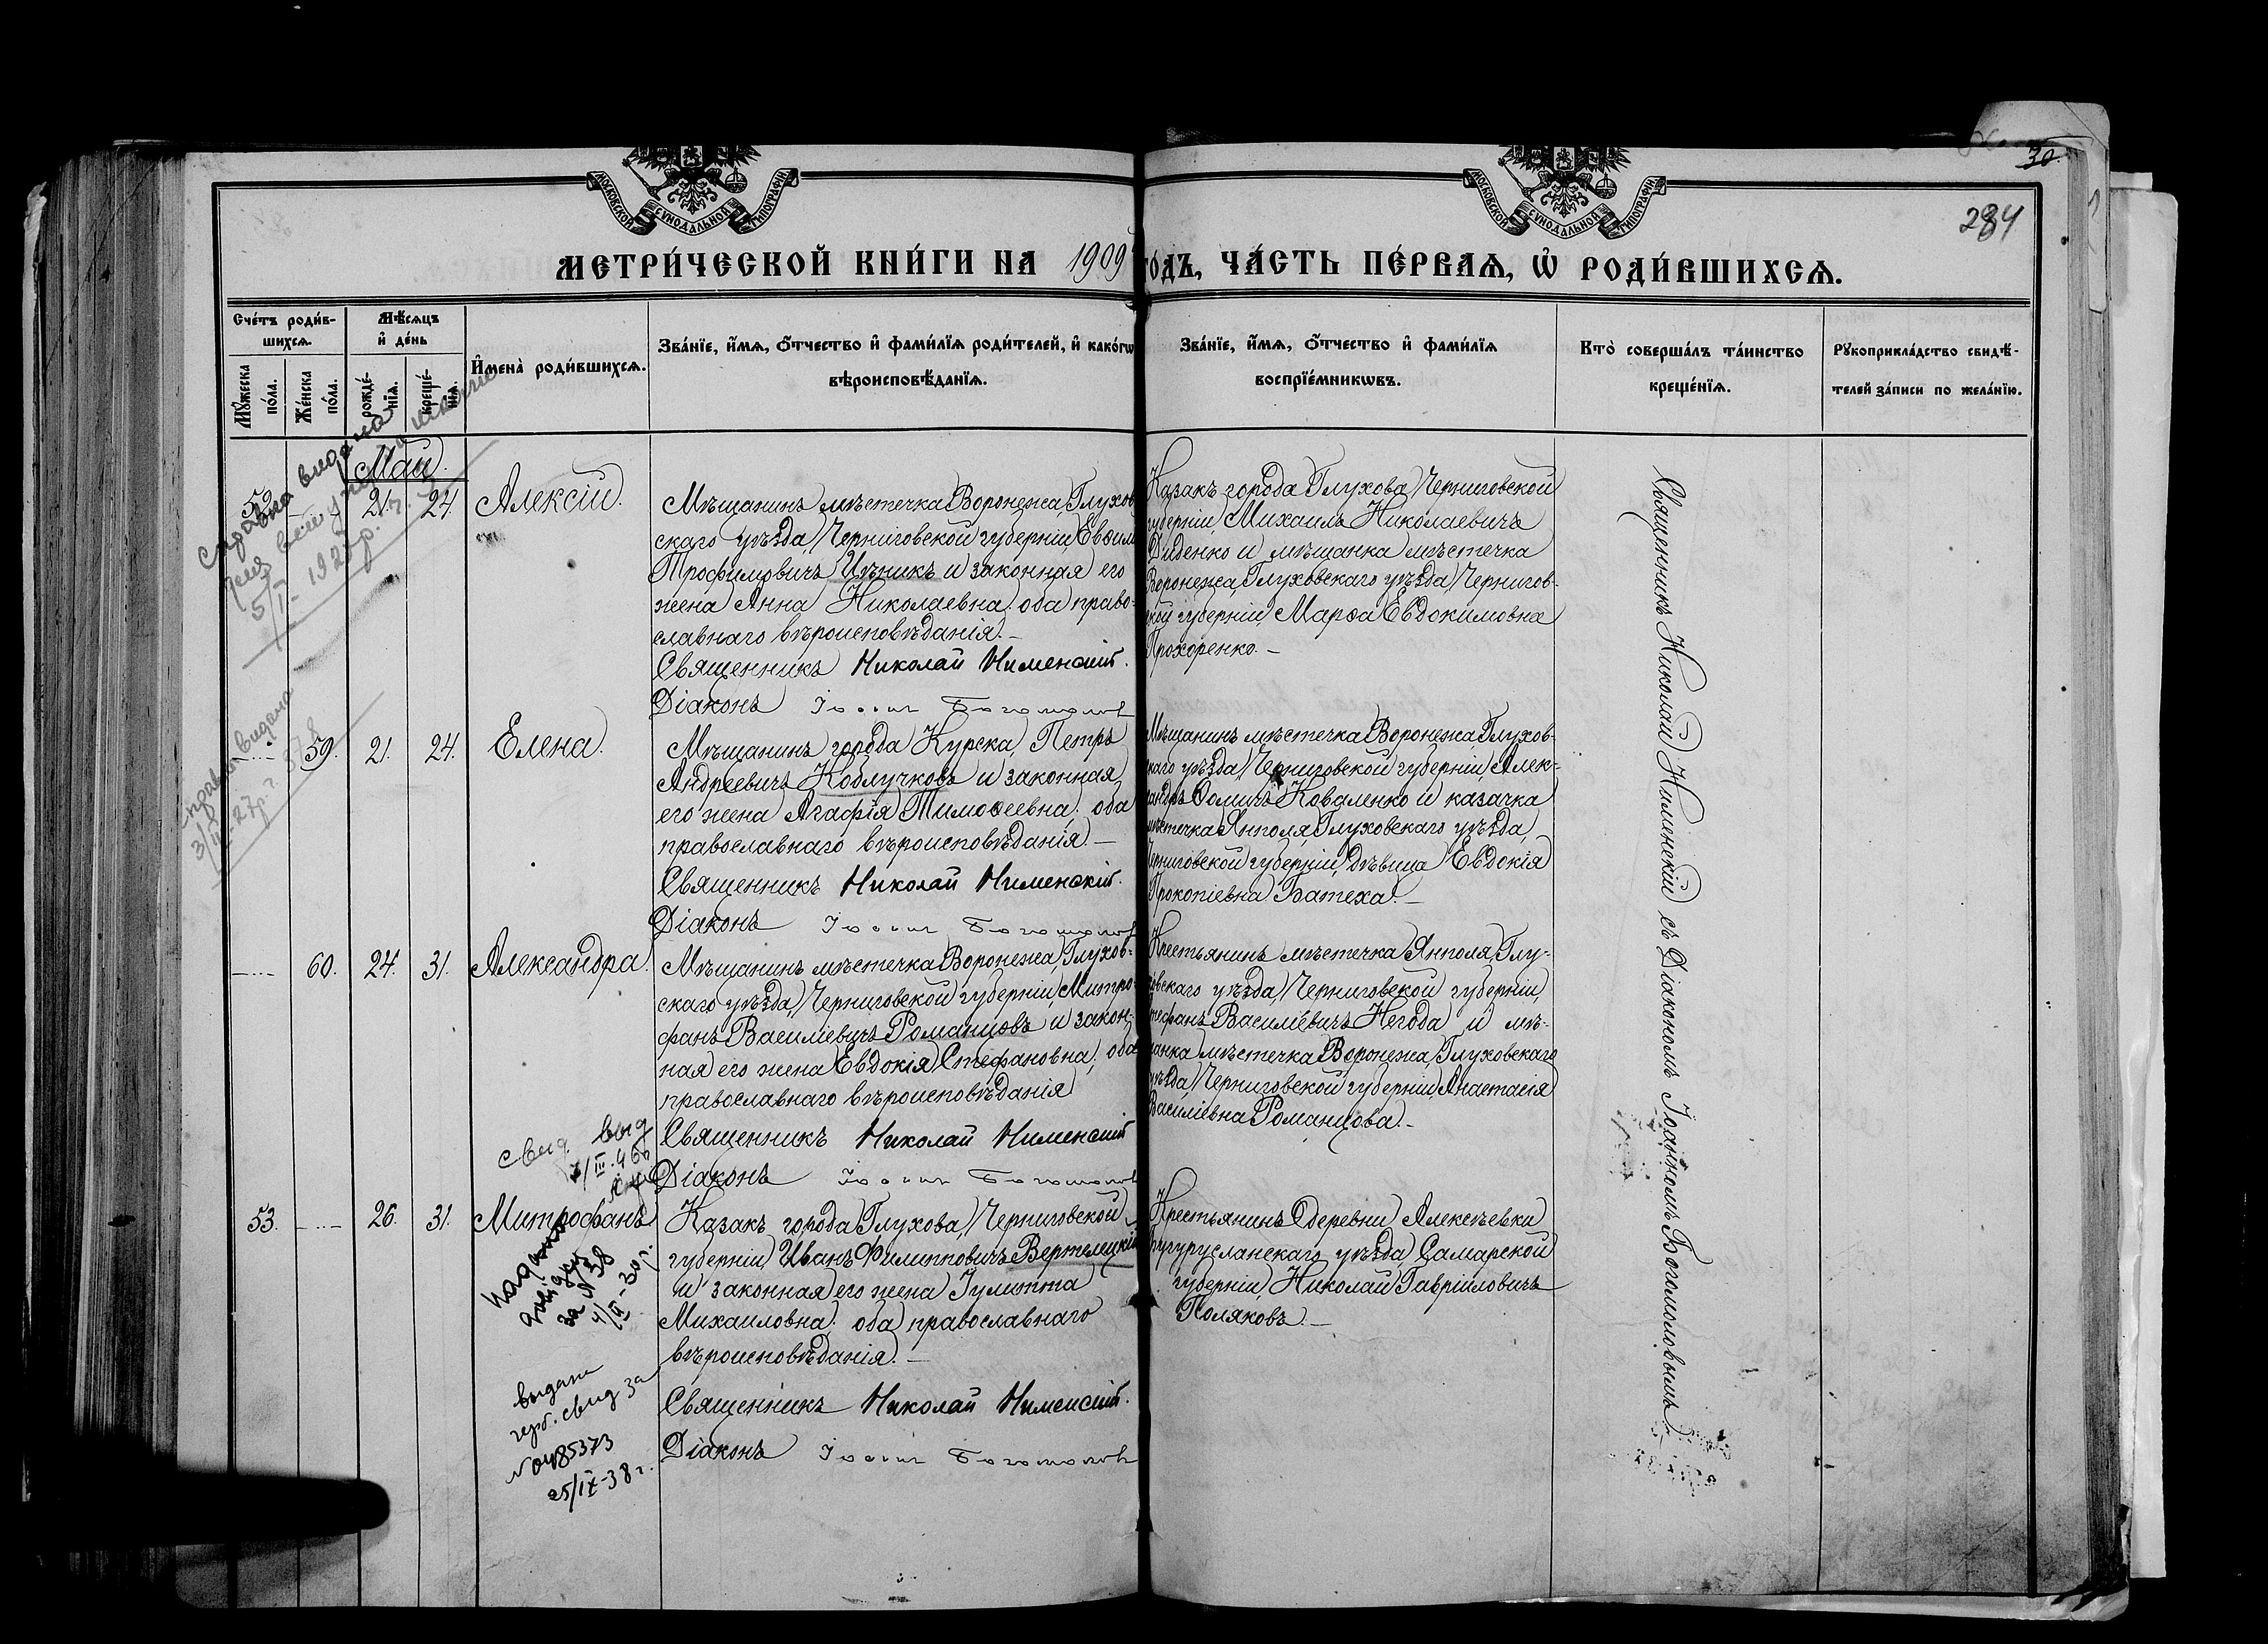 МОСКОВСКОЙ СѴНОДАЛЬНОЙ ТИПОГРАФІИ
МОСКОВСКОЙ СѴНОДАЛЬНОЙ ТИПОГРАФІИ
30
284
МЕТРИ́ЧЕСКОЙ КНИ́ГИ НА 1909 ГОДЪ, ЧА́СТЬ ПЕ́РВАѦ, Ѡ҆ РОДИ́ВШИХСѦ.
Сче́тъ роди́в-
шихсѧ.
Мꙋ́жеска по́ла.
Же́нска по́ла.
Мѣ́сѧцъ
и҆ де́нь
рожде́-
нїѧ.
креще́-
нїѧ.
И҆мена̀ роди́вшихсѧ.
Зва́нїе, и҆́мѧ, ѻ҆́тчество и҆ фами́лїѧ роди́телей, и҆ како́гѡ
вѣроисповѣ́данїѧ.
Зва́нїе, и҆́мѧ, ѻ҆́тчество и҆ фами́лїѧ
воспрїе́мникѡвъ.
Кто̀ соверша́лъ та́инство
креще́нїѧ.
Рꙋкоприкла́дство свидѣ́-
телей за́писи по жела́нїю.
Май.
52. 21. 24. Алексій.
Мѣщанинъ мѣстечка Воронежа, Глухов
скаго уѣзда, Черниговской губерніи, Евѳим
Трофимовичъ Ицникъ и законная его
жена Анна Николаевна: оба право-
славнаго вѣроисповѣданія.–
Священникъ Николай Нименскій.
Діаконъ Іоаннъ Богомоловъ
Казакъ города Глухова, Черниговской
губерніи, Михаилъ Николаевичъ
Диденко и мѣщанка мѣстечка
Воронежа, Глуховскаго уѣзда, Чернигов-
ской губерніи, Марѳа Евдокимовна
Прохоренко.–
справка видана
5/I- 192 р.
59. 21. 24. Елена.
Мѣщанинъ города Курска, Петръ
Андреевичъ Коблучковъ и законная
его жена Агафія Тимоѳеевна: оба
православнаго вѣроисповѣданія.–
Священникъ Николай Нименскій.
Діаконъ Іоаннъ Богомоловъ
Мѣщанинъ мѣстечка Воронежа, Глухов-
скаго уѣзда, Черниговской губерніи, Алек-
сандръ Ѳомичъ Коваленко и казачка
мѣстечка Янполя, Глуховскаго уѣзда,
Черниговской губерніи, дѣвица Евдокія
Прокопіевна Батеха.–
справка видана
60. 24. 31. Александра.
Мѣщанинъ мѣстечка Воронежа, Глухов-
скаго уѣзда, Черниговской губерніи, Митро-
фанъ Василіевичъ Романцовъ и закон-
ная его жена Евдокія Стефановна; оба
православнаго вѣроисповѣданія
Священникъ Николай Нименскій
Діаконъ Іоаннъ Богомоловъ
Крестьянинъ мѣстечка Янполя, Глу-
ховскаго уѣзда, Черниговской губерніи,
Стефанъ Василіевичъ Негода и мѣ-
щанка мѣстечка Воронежа, Глуховскаго
уѣзда, Черниговской губерніи, Анастасія
Василіевна Романцова.–
свид выд
53. 26. 31. Митрофанъ
Казакъ города Глухова, Черниговской
губерніи, Иванъ Филипповичъ Вертелецкій
и законная его жена Іулитта
Михаиловна: оба православнаго
вѣроисповѣданія.–
Священникъ Николай Нименскій.
Діаконъ Іоаннъ Богомоловъ
Крестьянинъ деревни Алексѣевки
Бугурусланскаго уѣзда, Самарской
губерніи, Николай Гавріиловичъ
Поляковъ.–
за № 38
4/IX-30 г.
выдано
герб. свид за
№ 0485373
25/IX-38 г.
Священникъ Николай Нименскій съ Діакономъ Іоанномъ Богомоловымъ